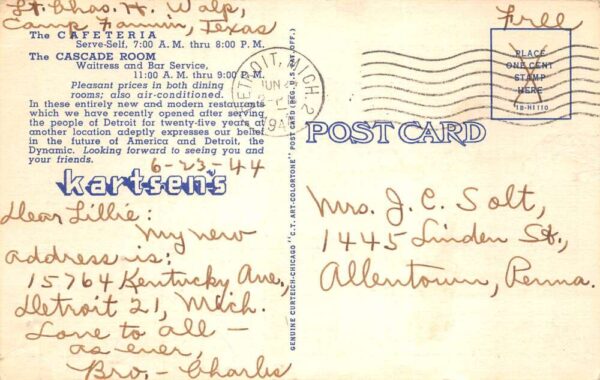 Lt. Chas. H. Walp,
Camp Fannin, Texas
Free
The CAFETERIA
Serve-Self, 7:00 A. M. thru 8:00 P. M.
The CASCADE ROOM
Waitress and Bar Service,
11:00 A. M. thru 9:00 P. M.
Pleasant prices in both dining
rooms; also air-conditioned.
In these entirely new and modern restaurants
which we have recently opened after serving
the people of Detroit for twenty-five years at
another location adeptly expresses our belief
in the future of America and Detroit, the
Dynamic. Looking forward to seeing you and
your friends.
6-23-44
kartsen's
Dear Lillie:
My new
address is:
15764 Kentucky Ave,
Detroit 21, Mich.
Love to all —
as ever,
Bro, - Charles
GENUINE CURTEICH-CHICAGO "C.T. ART-COLORTONE" POST CARD (REG. U.S. PAT. OFF.)
DETROIT, MICH. 2
JUN
194
PLACE
ONE CENT
STAMP
HERE
1B-H1110
POST CARD
Mrs. J. C. Solt,
1445 Linden St.,
Allentown, Penna.